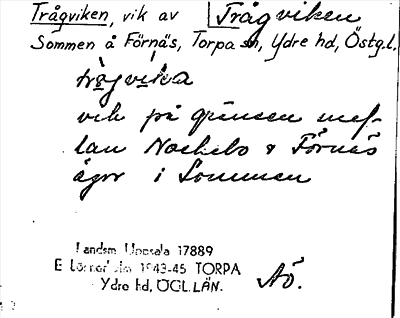 Trågviken, vik av Trågviken
Sommen å Förnäs, Torpa sn, Ydre hd, Östg.l.
trågvika
vik på gränsen mel-
lan Norrbo & Förnäs
ägor i Sommen
Landsm. Uppsala 17889
E 1943-45 TORPA
Ydre hd, ÖGL. LÄN.